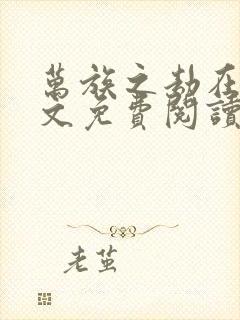 萬族之劫在
文免費閱讀
老茧